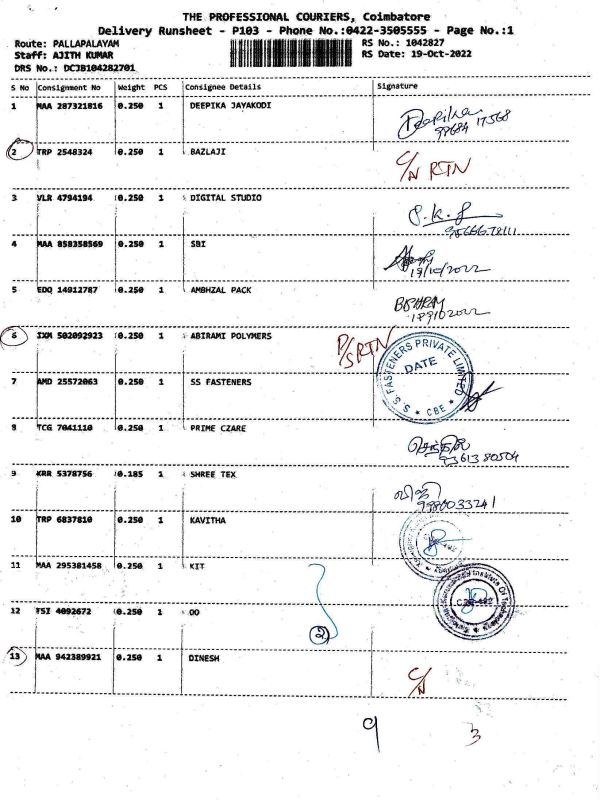 THE PROFESSIONAL COURIERS, Coimbatore
Delivery Runsheet - P103 - Phone No.:0422-3505555 - Page No.:1
Route: PALLAPALAYAM RS No.: 1042827
Staff: AJITH KUMAR RS Date: 19-Oct-2022
DRS No.: DCJB104282701
S No Consignment No Weight PCS Consignee Details Signature
1 MAA 287321816 0.250 1 DEEPIKA JAYAKODI
2 TRP 2548324 0.250 1 BAZLAJI C/N RTN
3 VLR 4794194 0.250 1 DIGITAL STUDIO
4 MAA 858358569 0.250 1 SBI
19/10/2022
5 EDQ 14912787 0.250 1 AMBHZAL PACK
6 IXM 502092923 0.250 1 ABIRAMI POLYMERS P/S RTN
7 AMD 25572063 0.250 1 SS FASTENERS
S.S. FASTENERS PRIVATE LIMITED
DATE
CBE
8 TCG 7041110 0.250 1 PRIME CZARE
9 KRR 5378756 0.185 1 SHREE TEX
விஜி
10 TRP 6837810 0.250 1 KAVITHA
11 MAA 295381458 0.250 1 KIT
12 TSI 4092672 0.250 1 OO
2
13 MAA 942389921 0.250 1 DINESH C/N
9 3